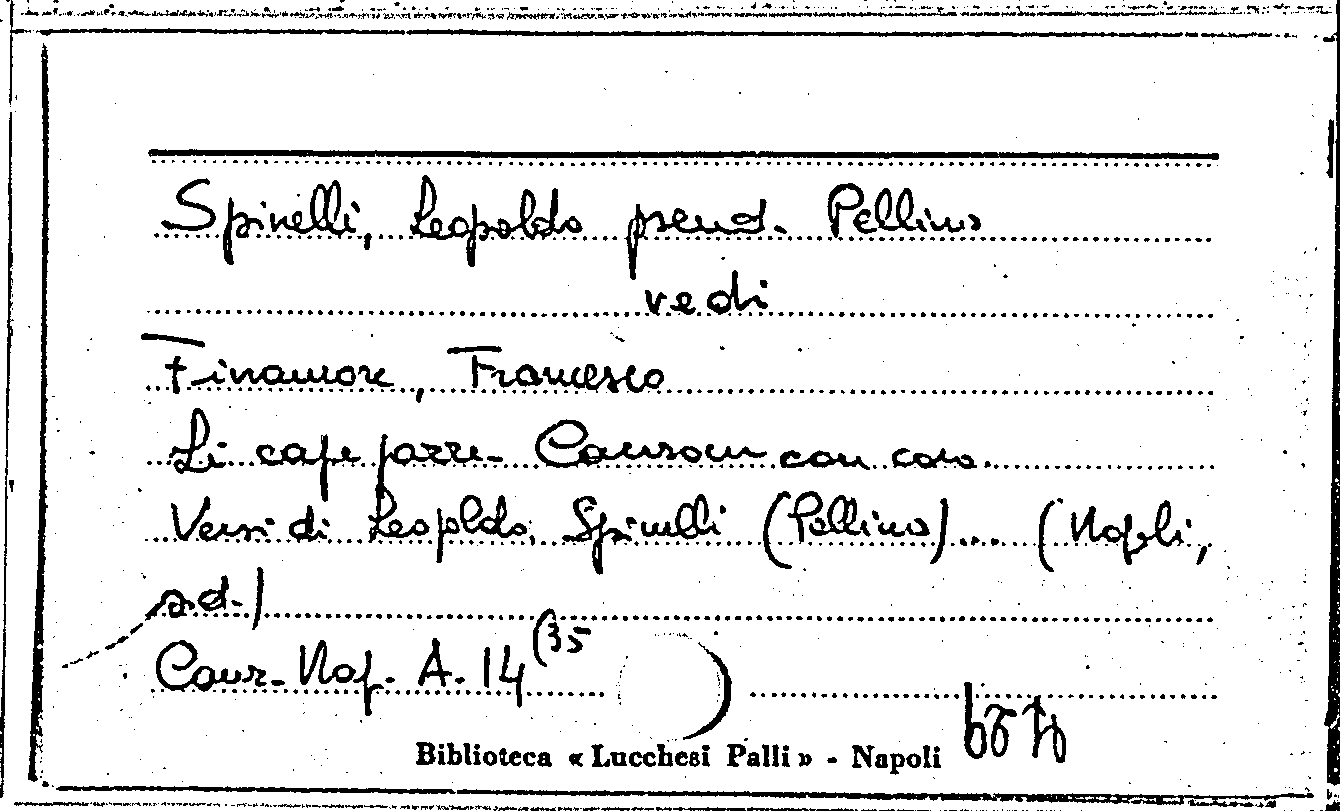 Spinelli, Leopoldo pseud. Pellino
vedi
Finamore, Francesco
Li cape pazze - Canzone con coro.
Versi di Leopoldo Spinelli (Pellino)... (Napoli,
s.d.)
Canz. Nap. A. 14 (35
Biblioteca « Lucchesi Palli » - Napoli